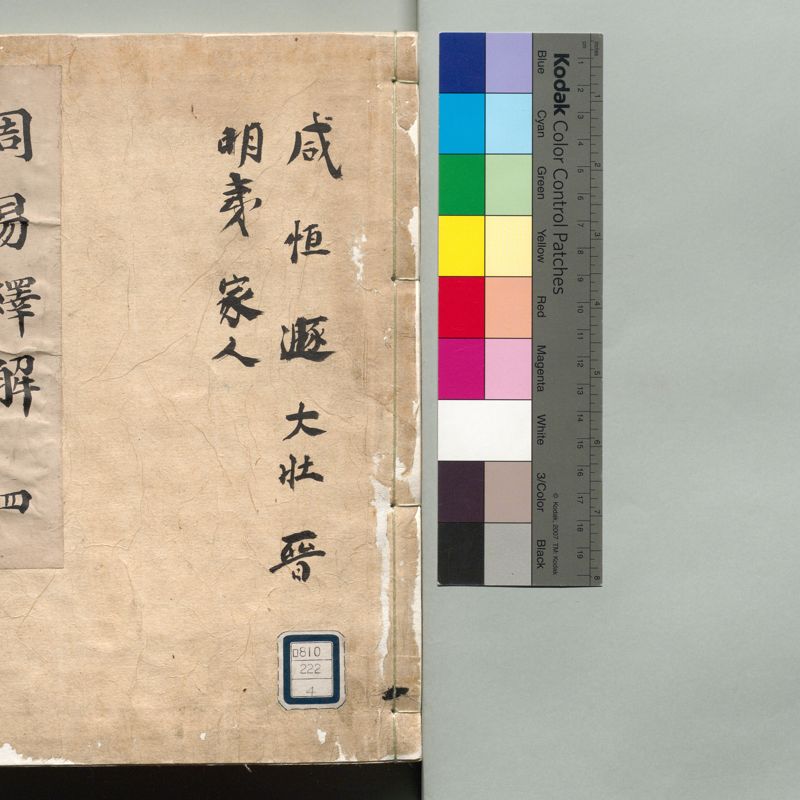 咸 恒 遯 大壯 晉
明夷 家人
周易繹解 四
口810
222
4
Kodak Color Control Patches
Blue
Cyan
Green
Yellow
Red
Magenta
White
3/Color
Black
© Kodak, 2007 TM: Kodak
cm 1 2 3 4 5 6 7 8 9 10 11 12 13 14 15 16 17 18 19
inches 1 2 3 4 5 6 7 8